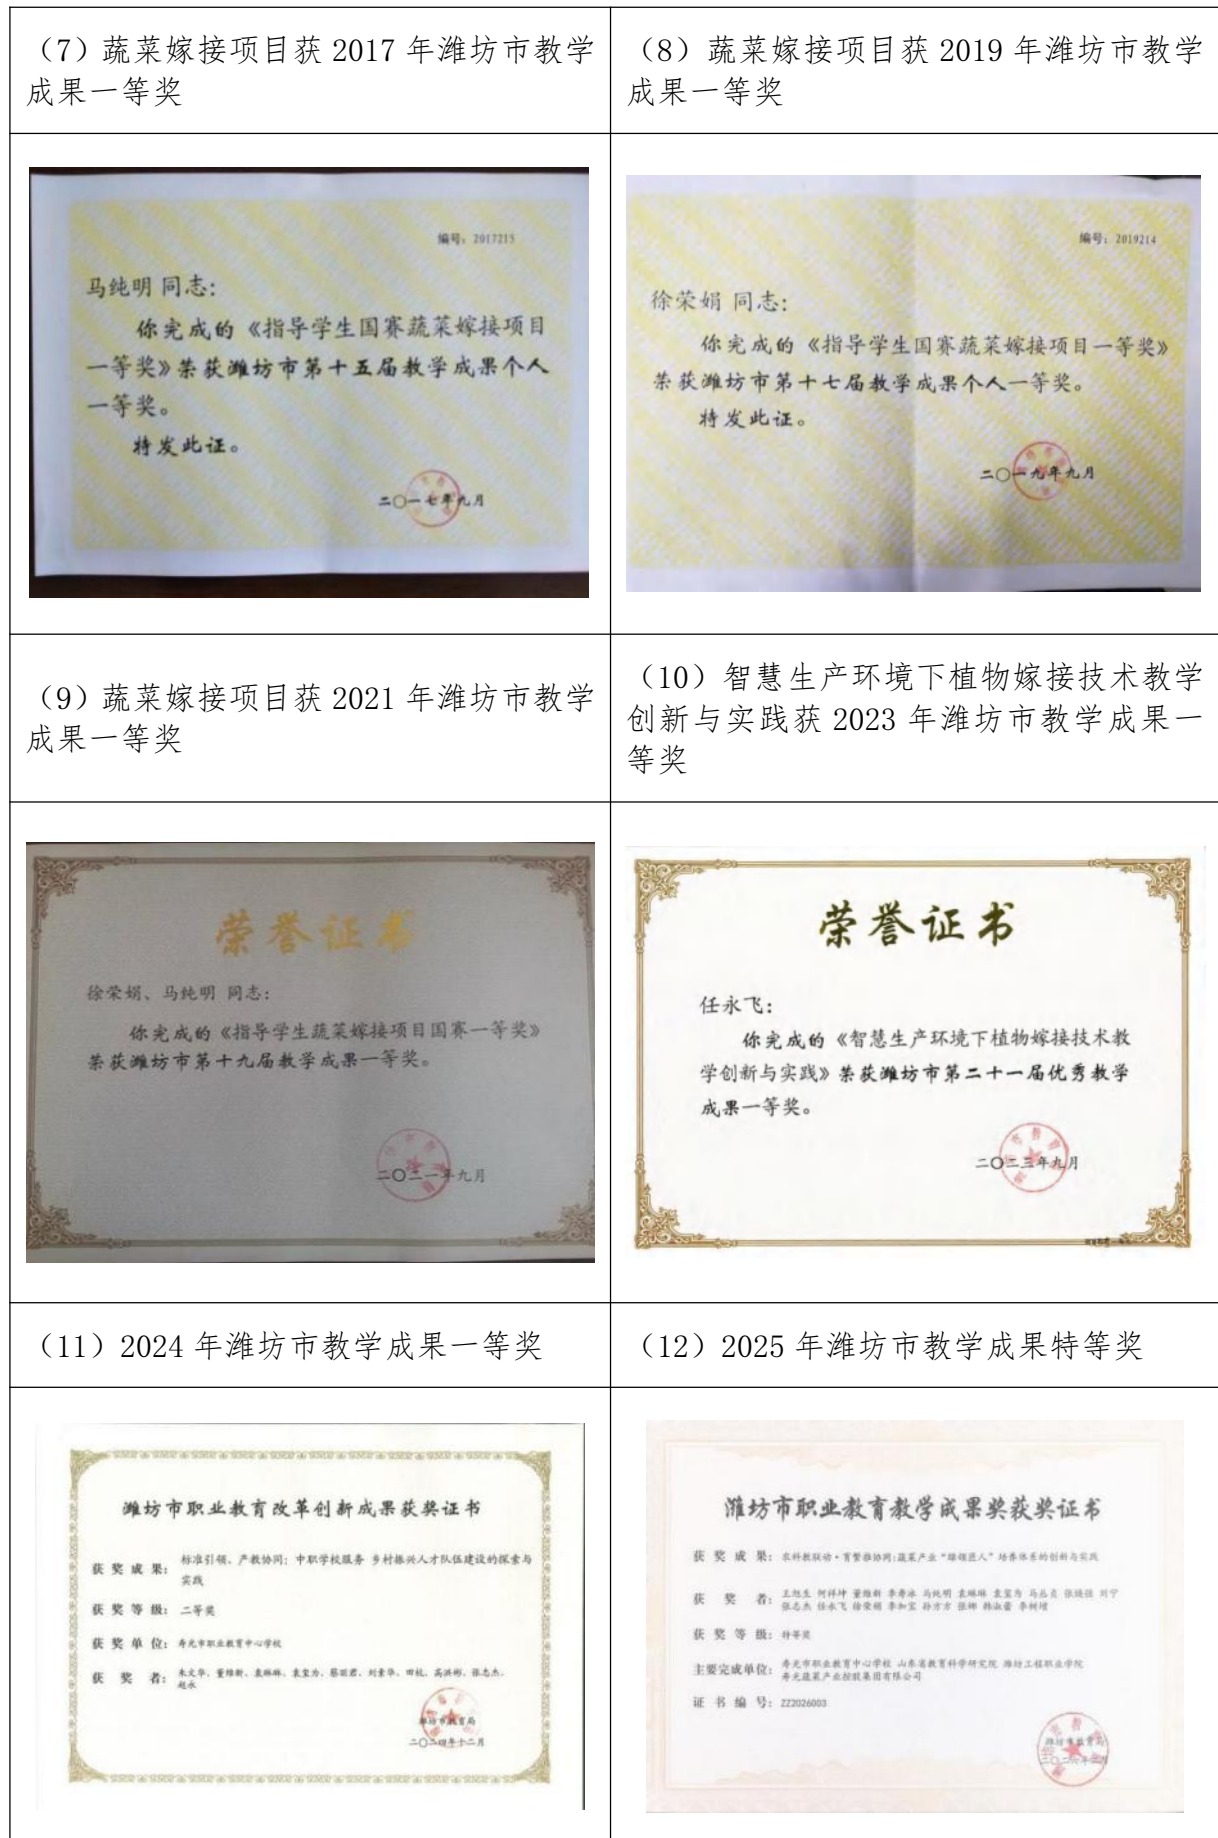 （7）蔬菜嫁接项目获 2017 年潍坊市教学
成果一等奖
（8）蔬菜嫁接项目获 2019 年潍坊市教学
成果一等奖
编号：2017215
马纯明 同志：
你完成的《指导学生国赛蔬菜嫁接项目
一等奖》荣获潍坊市第十五届教学成果个人
一等奖。
特发此证。
二〇一七年九月
编号：2019214
徐荣娟 同志：
你完成的《指导学生国赛蔬菜嫁接项目一等奖》
荣获潍坊市第十七届教学成果个人一等奖。
特发此证。
二〇一九年九月
（9）蔬菜嫁接项目获 2021 年潍坊市教学
成果一等奖
（10）智慧生产环境下植物嫁接技术教学
创新与实践获 2023 年潍坊市教学成果一
等奖
荣誉证书
徐荣娟、马纯明 同志：
你完成的《指导学生蔬菜嫁接项目国赛一等奖》
荣获潍坊市第十九届教学成果一等奖。
二〇二一年九月
荣誉证书
任永飞：
你完成的《智慧生产环境下植物嫁接技术教
学创新与实践》荣获潍坊市第二十一届优秀教学
成果一等奖。
二〇二三年九月
（11）2024 年潍坊市教学成果一等奖
（12）2025 年潍坊市教学成果特等奖
潍坊市职业教育改革创新成果获奖证书
获奖成果： 标准引领、产教协同：中职学校服务 乡村振兴人才队伍建设的探索与
实践
获奖等级： 二等奖
获奖单位： 寿光市职业教育中心学校
获奖者： 朱文华、董维新、袁琳琳、袁玺为、蔡丽君、刘素华、田杭、高洪彬、张志杰、
赵永
潍坊市教育局
二〇二四年十二月
潍坊市职业教育教学成果奖获奖证书
获奖成果： 农科教联动·育繁推协同：蔬菜产业“绿领匠人”培养体系的创新与实践
获奖者： 王旭生 何祥坤 董维新 李秀冰 马纯明 袁琳琳 袁玺为 马丛贞 张焕强 刘宁
张志杰 任永飞 徐荣娟 李加宝 孙方方 张娜 韩淑蕾 李树增
获奖等级： 特等奖
主要完成单位： 寿光市职业教育中心学校 山东省教育科学研究院 潍坊工程职业学院
寿光蔬菜产业控股集团有限公司
证书编号： ZZ2026003
潍坊市教育局